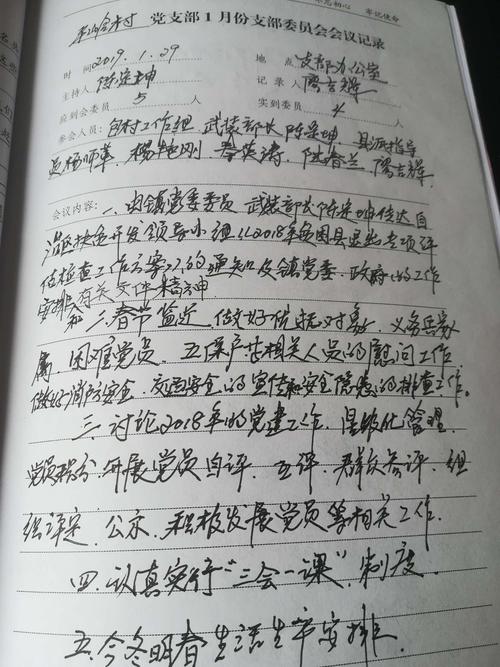 不忘初心 牢记使命
村 党支部1月份支部委员会会议记录
时 间 2019.1.29 地 点 支部办公室
主持人 陈荣坤 记 录 人 廖吉辉
应到会委员 5 人 实到委员 4 人
参会人员：包村工作组 武装部长陈荣坤，县派指导
员杨师革，杨艳刚 李英涛，陆春兰 廖吉辉
会议内容：一、由镇党委委员 武装部长陈荣坤传达自
治区扶贫开发领导小组《2018年贫困县退出专项评
估检查工作方案》的通知以及镇党委、政府的工作
安排有关文件精神
二、春节临近 做好优抚对象，义务兵家
属，困难党员，五保户等相关人员的慰问工作
做好消防安全，交通安全的宣传和安全隐患的排查工作。
三、讨论2018年的党建工作，星级化管理，
党员积分 开展党员自评，互评，群众参评，组
织评定，公示，积极发展党员等相关工作.
四、认真实行“三会一课”制度
五、今冬明春生活生产安排